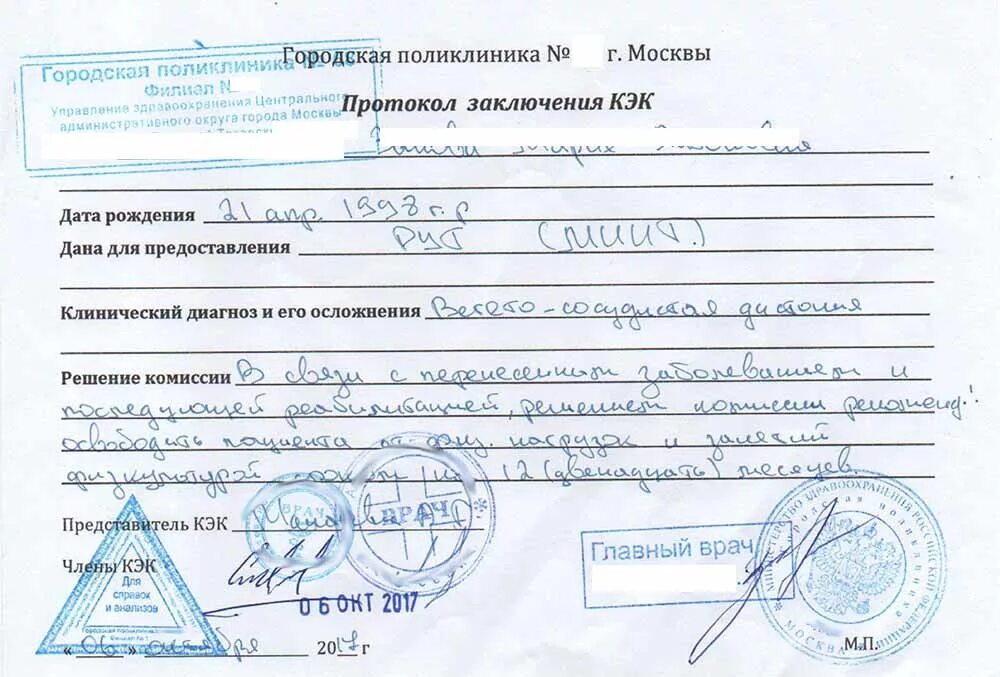 Городская поликлиника № г. Москвы
Городская поликлиника №
Филиал №
Управление здравоохранения Центрального
административного округа города Москвы
Протокол заключения КЭК
Дата рождения 21 апр. 1998 г.р
Дана для предоставления РУТ (МИИТ.)
Клинический диагноз и его осложнения Вегето-сосудистая дистония
Решение комиссии В связи с перенесенным заболеванием и
последующей реабилитацией, решением комиссии рекоменд.:
освободить пациента от физ. нагрузок и занятий
физкультурой сроком на 12 (двенадцать) месяцев.
Представитель КЭК
ВРАЧ
ВРАЧ
Главный врач
Члены КЭК
Для
справок
и анализов
Городская поликлиника
Филиал № 1
06 ОКТ 2017
МИНИСТЕРСТВО ЗДРАВООХРАНЕНИЯ РОССИЙСКОЙ ФЕДЕРАЦИИ
городская поликлиника
МОСКВА
« 06 » октября 2017 г
М.П.